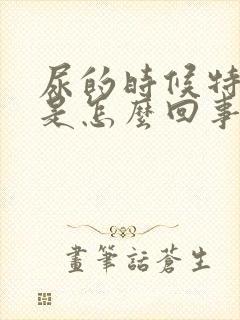 尿的時候特
是怎麼回事
畫筆話蒼生